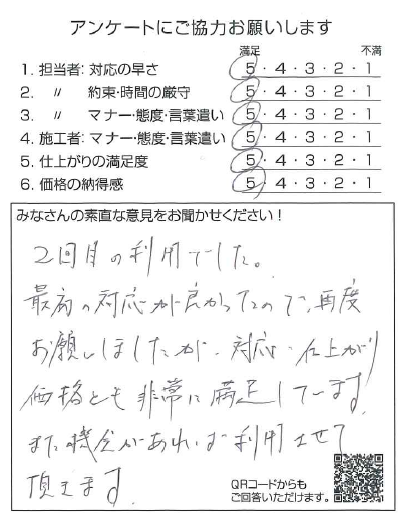 アンケートにご協力お願いします
満足 不満
1. 担当者: 対応の早さ 5・4・3・2・1
2. 〃 約束・時間の厳守 5・4・3・2・1
3. 〃 マナー・態度・言葉遣い 5・4・3・2・1
4. 施工者: マナー・態度・言葉遣い 5・4・3・2・1
5. 仕上がりの満足度 5・4・3・2・1
6. 価格の納得感 5・4・3・2・1
みなさんの素直な意見をお聞かせください！
2回目の利用でした。
最初の対応が良かったので、再度
お願いしましたが、対応・仕上がり
価格とも非常に満足しています。
また機会があればご利用させて
頂きます。
QRコードからも
ご回答いただけます。